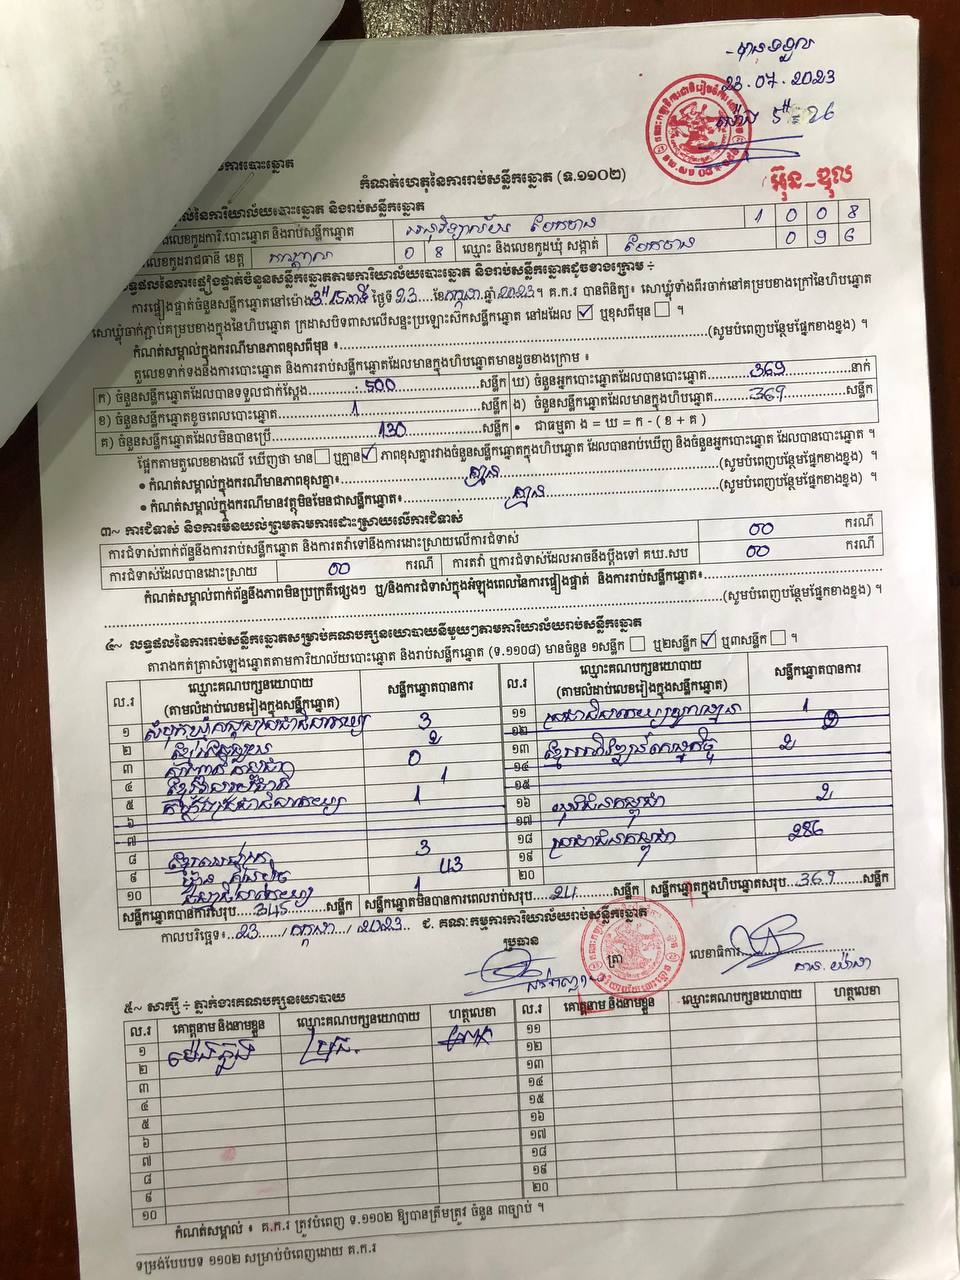 បានទទួល
23.07.2023
ម៉ោង 5 : 26
អ៊ុន-ឌុល
ការបោះឆ្នោត
កំណត់ហេតុនៃការរាប់សន្លឹកឆ្នោត (ទ.១១០២)
នៃការិយាល័យបោះឆ្នោត និងរាប់សន្លឹកឆ្នោត
លេខកូដការិ.បោះឆ្នោត និងរាប់សន្លឹកឆ្នោត 1 0 0 8
លេខកូដរាជធានី ខេត្ត កណ្តាល 0 8 ឈ្មោះ និងលេខកូដឃុំ សង្កាត់ បែកចាន 0 9 6
លទ្ធផលនៃការផ្ទៀងផ្ទាត់ចំនួនសន្លឹកឆ្នោតតាមការិយាល័យបោះឆ្នោត និងរាប់សន្លឹកឆ្នោតដូចខាងក្រោម ÷
ការផ្ទៀងផ្ទាត់ចំនួនសន្លឹកឆ្នោតនៅម៉ោង 3:15នាទី ថ្ងៃទី 23 ខែកក្កដា ឆ្នាំ 2023។ គ.ក.រ បានពិនិត្យ៖ សោឃ្លុំទាំងពីរចាក់នៅគម្របខាងក្រៅនៃហិបឆ្នោត
សោឃ្លុំចាក់ភ្ជាប់គម្របខាងក្នុងនៃហិបឆ្នោត ក្រដាសបិទពាសលើសន្ទះប្រឡោះស៊កសន្លឹកឆ្នោត នៅដដែល ☑ ឬខុសពីមុន ☐ ។
កំណត់សម្គាល់ក្នុងករណីមានភាពខុសពីមុន ៖ (សូមបំពេញបន្ថែមផ្នែកខាងខ្នង) ។
តួលេខទាក់ទងនឹងការបោះឆ្នោត និងការរាប់សន្លឹកឆ្នោតដែលមានក្នុងហិបឆ្នោតមានដូចខាងក្រោម ៖
ក) ចំនួនសន្លឹកឆ្នោតដែលបានទទួលជាក់ស្តែង 500 សន្លឹក ឃ) ចំនួនអ្នកបោះឆ្នោតដែលបានបោះឆ្នោត 369 នាក់
ខ) ចំនួនសន្លឹកឆ្នោតខូចពេលបោះឆ្នោត 1 សន្លឹក ង) ចំនួនសន្លឹកឆ្នោតដែលមានក្នុងហិបឆ្នោត 369 សន្លឹក
គ) ចំនួនសន្លឹកឆ្នោតដែលមិនបានប្រើ 130 សន្លឹក • ជាធម្មតា ង = ឃ = ក - ( ខ + គ )
ផ្អែកតាមតួលេខខាងលើ ឃើញថា មាន ☐ ឬគ្មាន ☑ ភាពខុសគ្នារវាងចំនួនសន្លឹកឆ្នោតក្នុងហិបឆ្នោត ដែលបានរាប់ឃើញ និងចំនួនអ្នកបោះឆ្នោត ដែលបានបោះឆ្នោត ។
• កំណត់សម្គាល់ក្នុងករណីមានភាពខុសគ្នា៖ គ្មាន (សូមបំពេញបន្ថែមផ្នែកខាងខ្នង) ។
• កំណត់សម្គាល់ក្នុងករណីមានវត្ថុមិនមែនជាសន្លឹកឆ្នោត៖ គ្មាន (សូមបំពេញបន្ថែមផ្នែកខាងខ្នង) ។
៣~ ការជំទាស់ និងការមិនយល់ព្រមតាមការដោះស្រាយលើការជំទាស់
ការជំទាស់ពាក់ព័ន្ធនឹងការរាប់សន្លឹកឆ្នោត និងការតវ៉ាទៅនឹងការដោះស្រាយលើការជំទាស់ 00 ករណី
ការជំទាស់ដែលបានដោះស្រាយ 00 ករណី ការតវ៉ា ឬការជំទាស់ដែលអាចនឹងប្តឹងទៅ គឃ.សប 00 ករណី
កំណត់សម្គាល់ពាក់ព័ន្ធនឹងភាពមិនប្រក្រតីផ្សេងៗ ឬ/និងការជំទាស់ក្នុងអំឡុងពេលនៃការផ្ទៀងផ្ទាត់ និងការរាប់សន្លឹកឆ្នោត៖
(សូមបំពេញបន្ថែមផ្នែកខាងខ្នង) ។
៤~ លទ្ធផលនៃការរាប់សន្លឹកឆ្នោតសម្រាប់គណបក្សនយោបាយនីមួយៗតាមការិយាល័យរាប់សន្លឹកឆ្នោត
តារាងកត់ត្រាសំឡេងឆ្នោតតាមការិយាល័យបោះឆ្នោត និងរាប់សន្លឹកឆ្នោត (ទ.១១០៨) មានចំនួន ១សន្លឹក ☐ ឬ២សន្លឹក ☑ ឬ៣សន្លឹក ☐ ។
ល.រ ឈ្មោះគណបក្សនយោបាយ (តាមលំដាប់លេខរៀងក្នុងសន្លឹកឆ្នោត) សន្លឹកឆ្នោតបានការ ល.រ ឈ្មោះគណបក្សនយោបាយ (តាមលំដាប់លេខរៀងក្នុងសន្លឹកឆ្នោត) សន្លឹកឆ្នោតបានការ
១ សំបុកឃ្មុំសង្គមប្រជាធិបតេយ្យ 3 ១១ 1
២ 2 ១២
៣ 0 ១៣ 2
៤ 1 ១៤
៥ 1 ១៥
៦ ១៦ 2
៧ ១៧
៨ 3 ១៨ ប្រជាជនកម្ពុជា 286
៩ 43 ១៩
១០ 1 ២០
សន្លឹកឆ្នោតបានការសរុប 345 សន្លឹក សន្លឹកឆ្នោតមិនបានការពេលរាប់សរុប 24 សន្លឹក សន្លឹកឆ្នោតក្នុងហិបឆ្នោតសរុប 369 សន្លឹក
កាលបរិច្ឆេទ៖ 23 / កក្កដា / 2023 ជ. គណៈកម្មការការិយាល័យរាប់សន្លឹកឆ្នោត
ប្រធាន ត្រា លេខាធិការ
៥~ សាក្សី ÷ ភ្នាក់ងារគណបក្សនយោបាយ
ល.រ គោត្តនាម និងនាមខ្លួន ឈ្មោះគណបក្សនយោបាយ ហត្ថលេខា ល.រ គោត្តនាម និងនាមខ្លួន ឈ្មោះគណបក្សនយោបាយ ហត្ថលេខា
១ ១១
២ ១២
៣ ១៣
៤ ១៤
៥ ១៥
៦ ១៦
៧ ១៧
៨ ១៨
៩ ១៩
១០ ២០
កំណត់សម្គាល់ ៖ គ.ក.រ ត្រូវបំពេញ ទ.១១០២ ឱ្យបានត្រឹមត្រូវ ចំនួន ៣ច្បាប់ ។
ទម្រង់បែបបទ ១១០២ សម្រាប់បំពេញដោយ គ.ក.រ